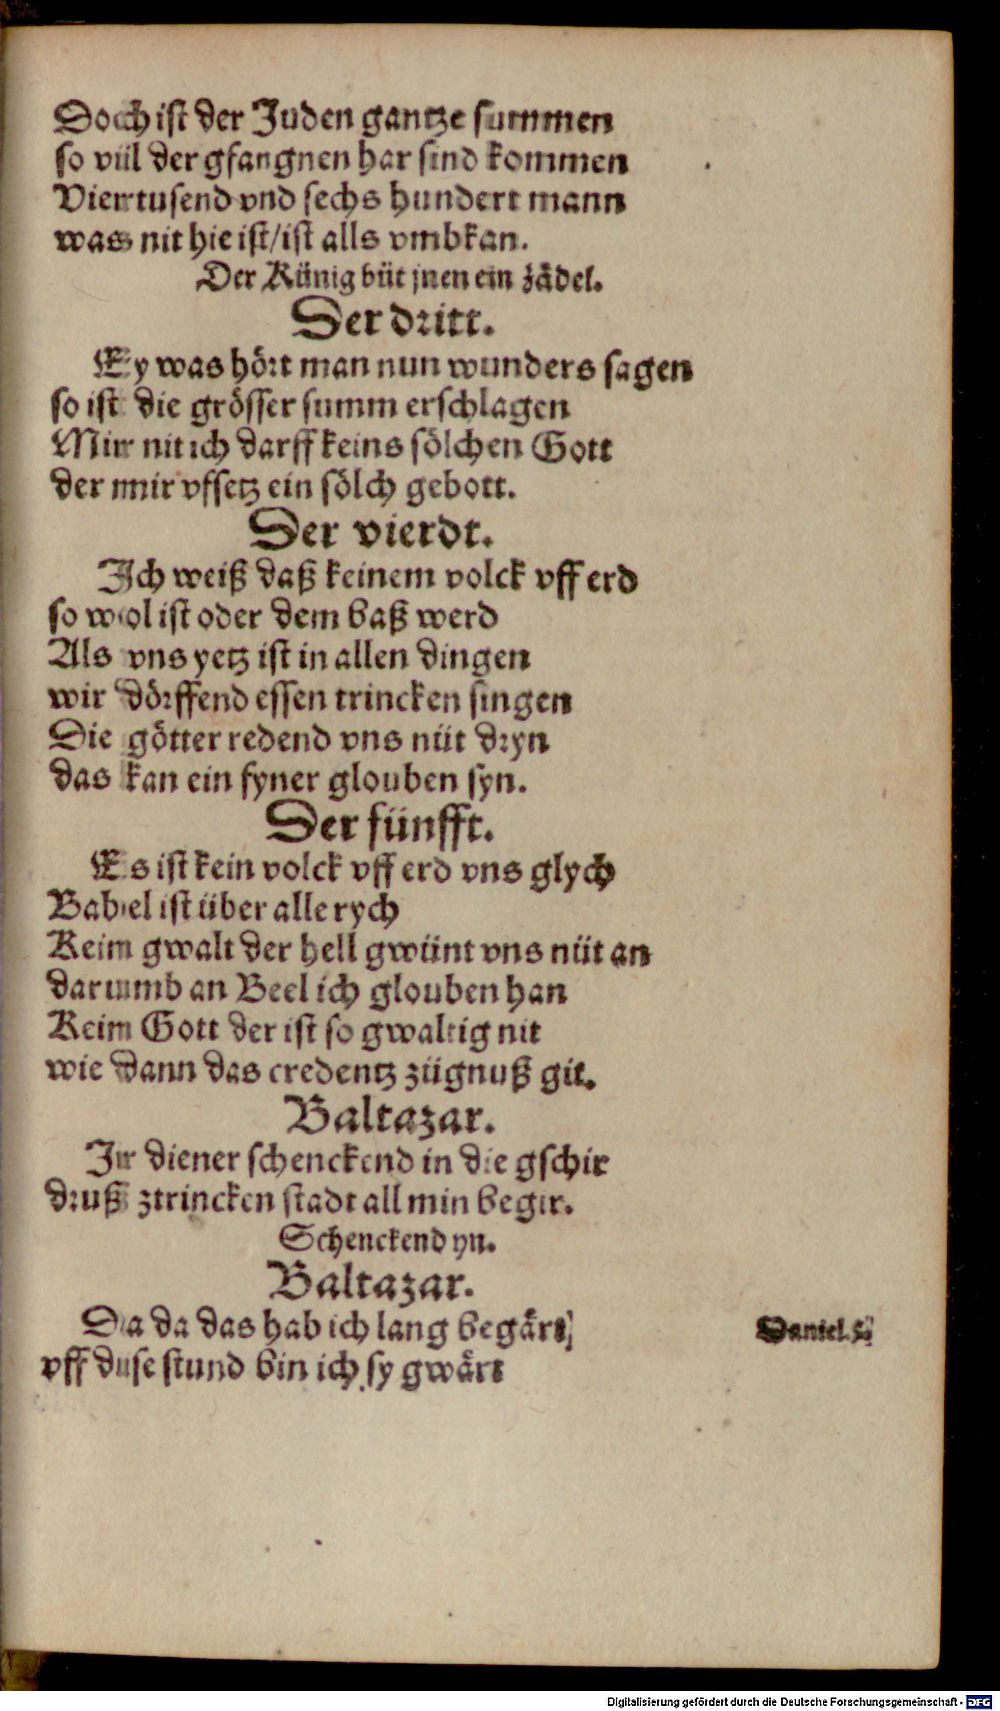 Doch ist der Juden gantze summen
so vil der gfangnen har sind kommen
Viertusend vnd sechs hundert mann
was nit hie ist/ist alls vmbkan.
Der Künig büt jnen ein zädel.
Der dritt.
Ey was hört man nun wunders sagen
so ist die grösser summ erschlagen
Mir nit ich darff keins sölchen Gott
der mir vffsetz ein sölch gebott.
Der vierdt.
Ich weiß daß keinem volck vff erd
so wol ist oder dem baß werd
Als vns yetz ist in allen dingen
wir dörffend essen trincken singen
Die götter redend vns nüt dryn
das kan ein fyner glouben syn.
Der fünfft.
Es ist kein volck vff erd vns glych
Babel ist über alle rych
Kein gwalt der hell gwünt vns nüt an
darumb an Beel ich glouben han
Kein Gott der ist so gwaltig nit
wie dann das credentz zügnuß git.
Baltazar.
Ir diener schenckend in die gschir
druß ztrincken stadt all min begir.
Schenckend yn.
Baltazar.
Da da das hab ich lang begärt
Daniel. 5.
vff dise stund bin ich sy gwärt
Digitalisierung gefördert durch die Deutsche Forschungsgemeinschaft - DFG